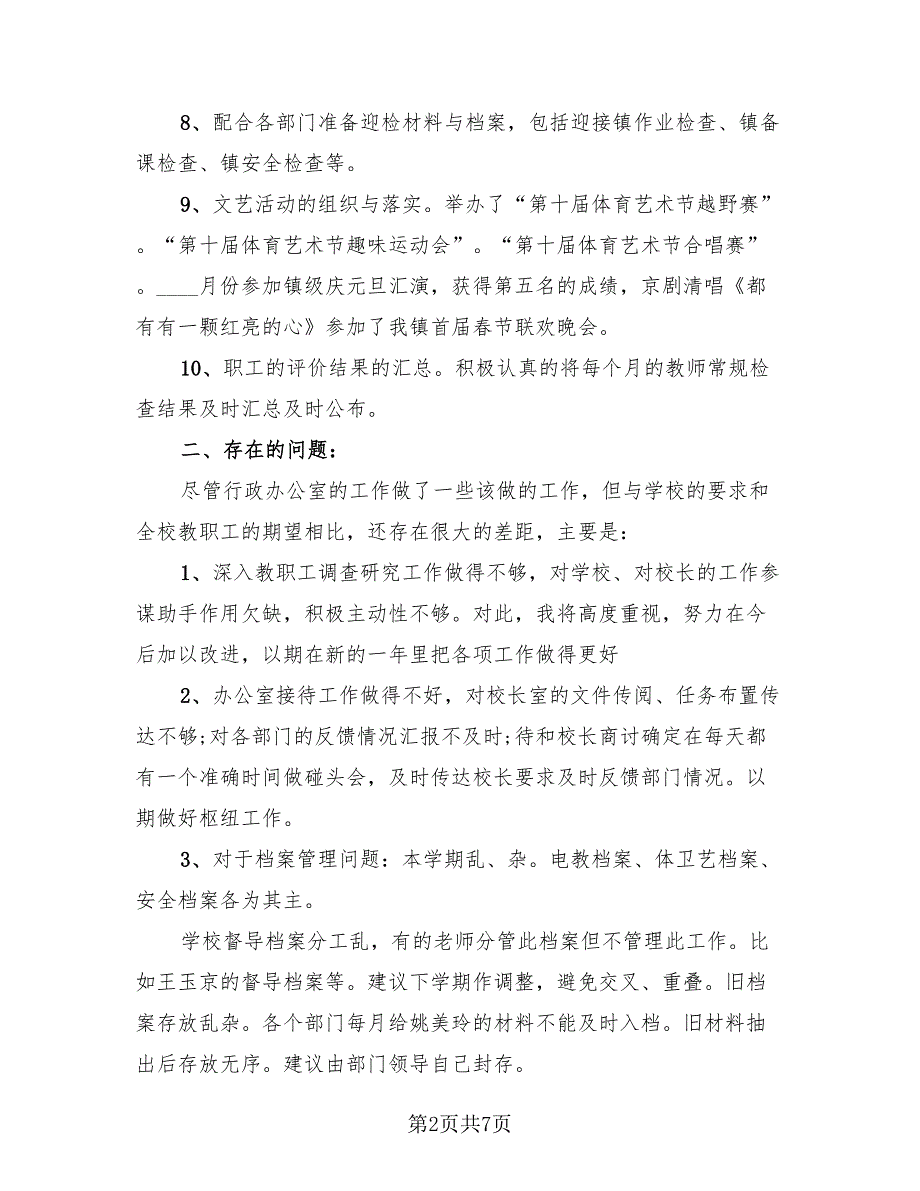 8、配合各部门准备迎检材料与档案，包括迎接镇作业检查、镇备
课检查、镇安全检查等。
9、文艺活动的组织与落实。举办了“第十届体育艺术节越野赛”
。“第十届体育艺术节趣味运动会”。“第十届体育艺术节合唱赛”
。____月份参加镇级庆元旦汇演，获得第五名的成绩，京剧清唱《都
有有一颗红亮的心》参加了我镇首届春节联欢晚会。
10、职工的评价结果的汇总。积极认真的将每个月的教师常规检
查结果及时汇总及时公布。
二、存在的问题：
尽管行政办公室的工作做了一些该做的工作，但与学校的要求和
全校教职工的期望相比，还存在很大的差距，主要是：
1、深入教职工调查研究工作做得不够，对学校、对校长的工作参
谋助手作用欠缺，积极主动性不够。对此，我将高度重视，努力在今
后加以改进，以期在新的一年里把各项工作做得更好
2、办公室接待工作做得不好，对校长室的文件传阅、任务布置传
达不够;对各部门的反馈情况汇报不及时;待和校长商讨确定在每天都
有一个准确时间做碰头会，及时传达校长要求及时反馈部门情况。以
期做好枢纽工作。
3、对于档案管理问题：本学期乱、杂。电教档案、体卫艺档案、
安全档案各为其主。
学校督导档案分工乱，有的老师分管此档案但不管理此工作。比
如王玉京的督导档案等。建议下学期作调整，避免交叉、重叠。旧档
案存放乱杂。各个部门每月给姚美玲的材料不能及时入档。旧材料抽
出后存放无序。建议由部门领导自己封存。
第2页共7页